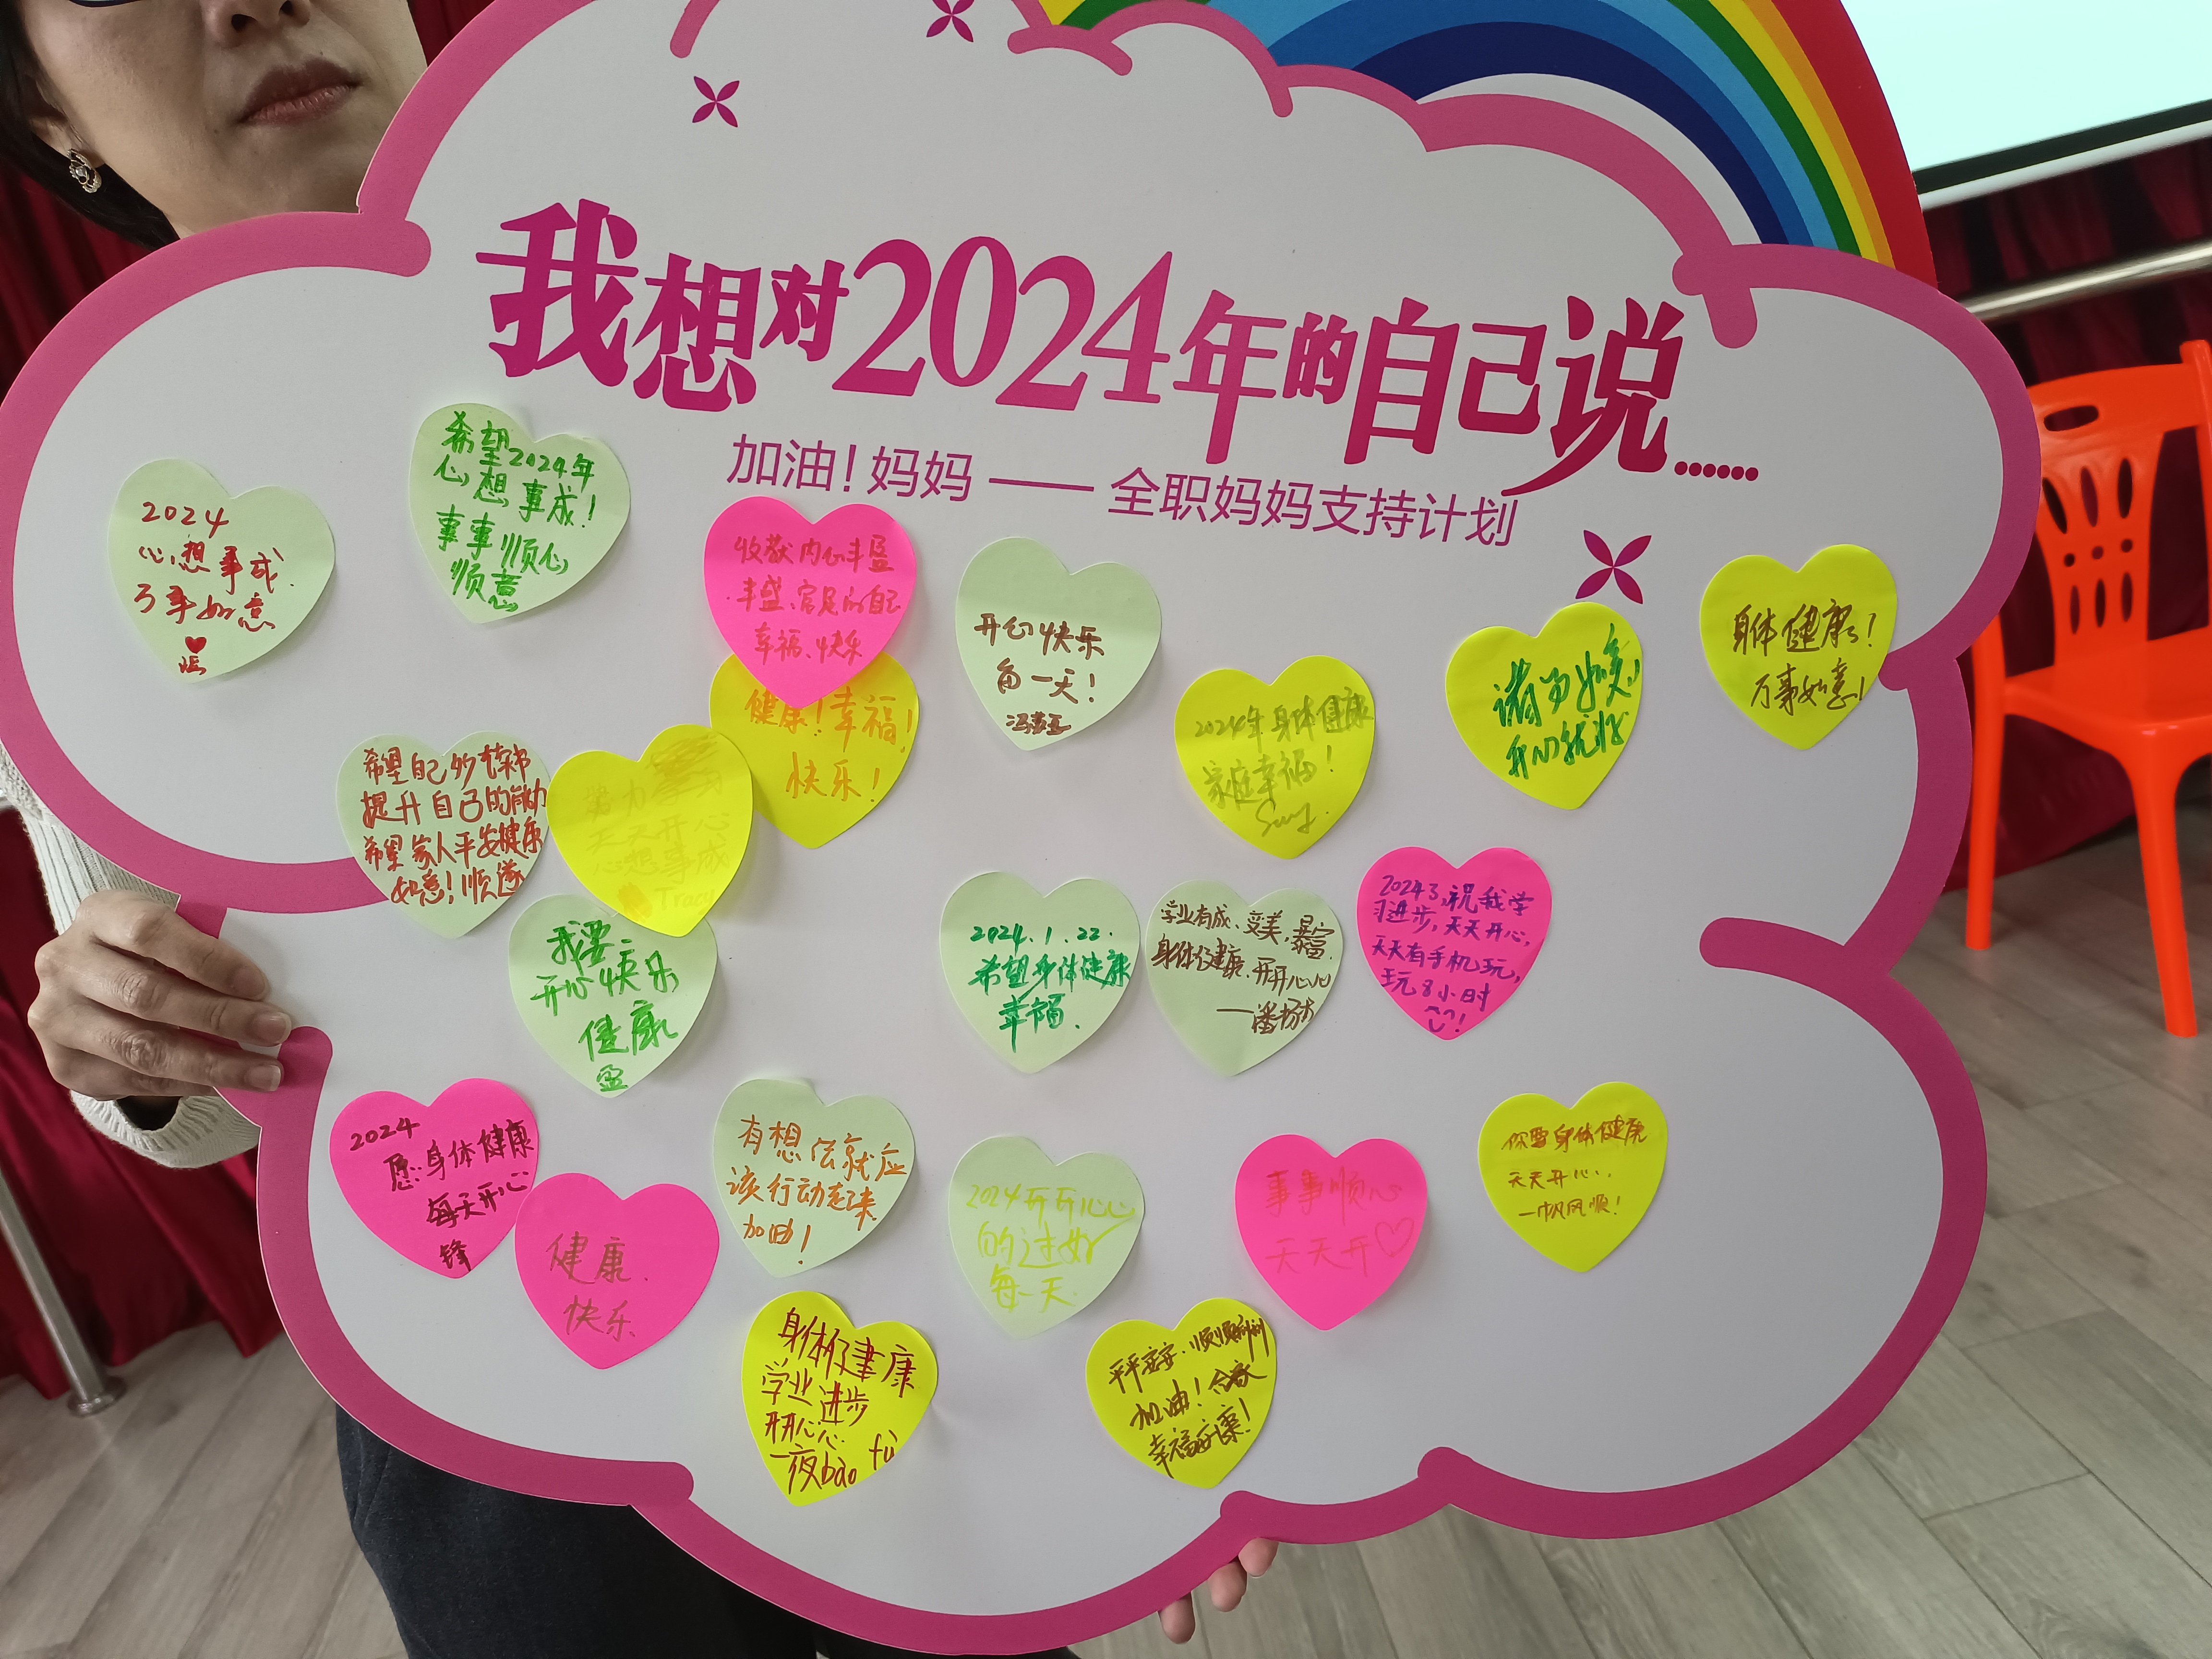 我想对2024年的自己说......
加油！妈妈 —— 全职妈妈支持计划
2024
心想事成
万事如意
希望2024年
心想事成！
事事顺心
顺意
收获内心丰盈
丰盛、富足的自己
幸福、快乐
开心快乐
每一天！
2024年身体健康
家庭幸福！
诸事如意
身体健康！
万事如意！
希望自己
提升自己的能力
希望家人平安健康
如意！顺遂
努力学习
天天开心
心想事成
Tracy
健康！幸福！
快乐！
我要
开心快乐
健康
盈
2024.1.22.
希望身体健康
幸福.
学业有成、变美,暴富
身体健康、开开心心
2024了,祝我学
习进步,天天开心,
天天有手机玩,
玩8小时
!
2024
愿:身体健康
每天开心
锋
健康.
快乐
有想法就应
该行动起来
加油！
2024开开心心
的过好
每一天.
事事顺心
天天开♡
你要身体健康
天天开心.
一帆风顺！
身体健康
学业进步
开开心心
一夜bào fù
平平安安.顺顺利利
加油！合家
幸福安康！